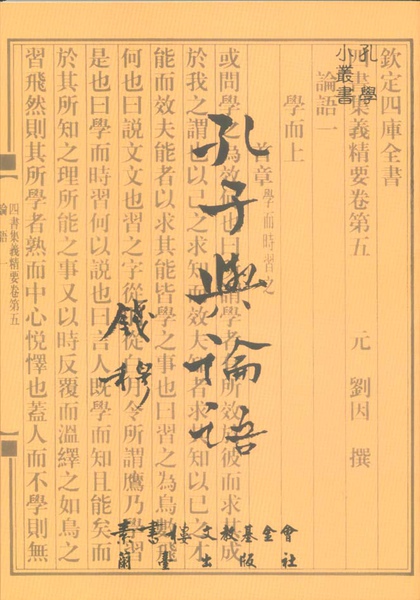 孔學
小叢書
孔子與論語
錢穆
素書樓文教基金會
蘭臺出版社
欽定四庫全書
四書集義精要卷第五 元 劉因 撰
論語一
學而上
首章 學而時習之
或問學之為效何也曰所謂學者有所效於彼而求其成
於我之謂也以己之未知而效夫知者以求其知以己之未
能而效夫能者以求其能皆學之事也曰習之為鳥數飛
何也曰説文文也習之字從羽從白月令所謂鷹乃學習
是也曰學而時習何以説也曰言人既學而知且能矣而
於其所知之理所能之事又以時反覆而溫繹之如鳥之
習飛然則其所學者熟而中心悦懌也蓋人而不學則無
四書集義精要卷第五
論語一